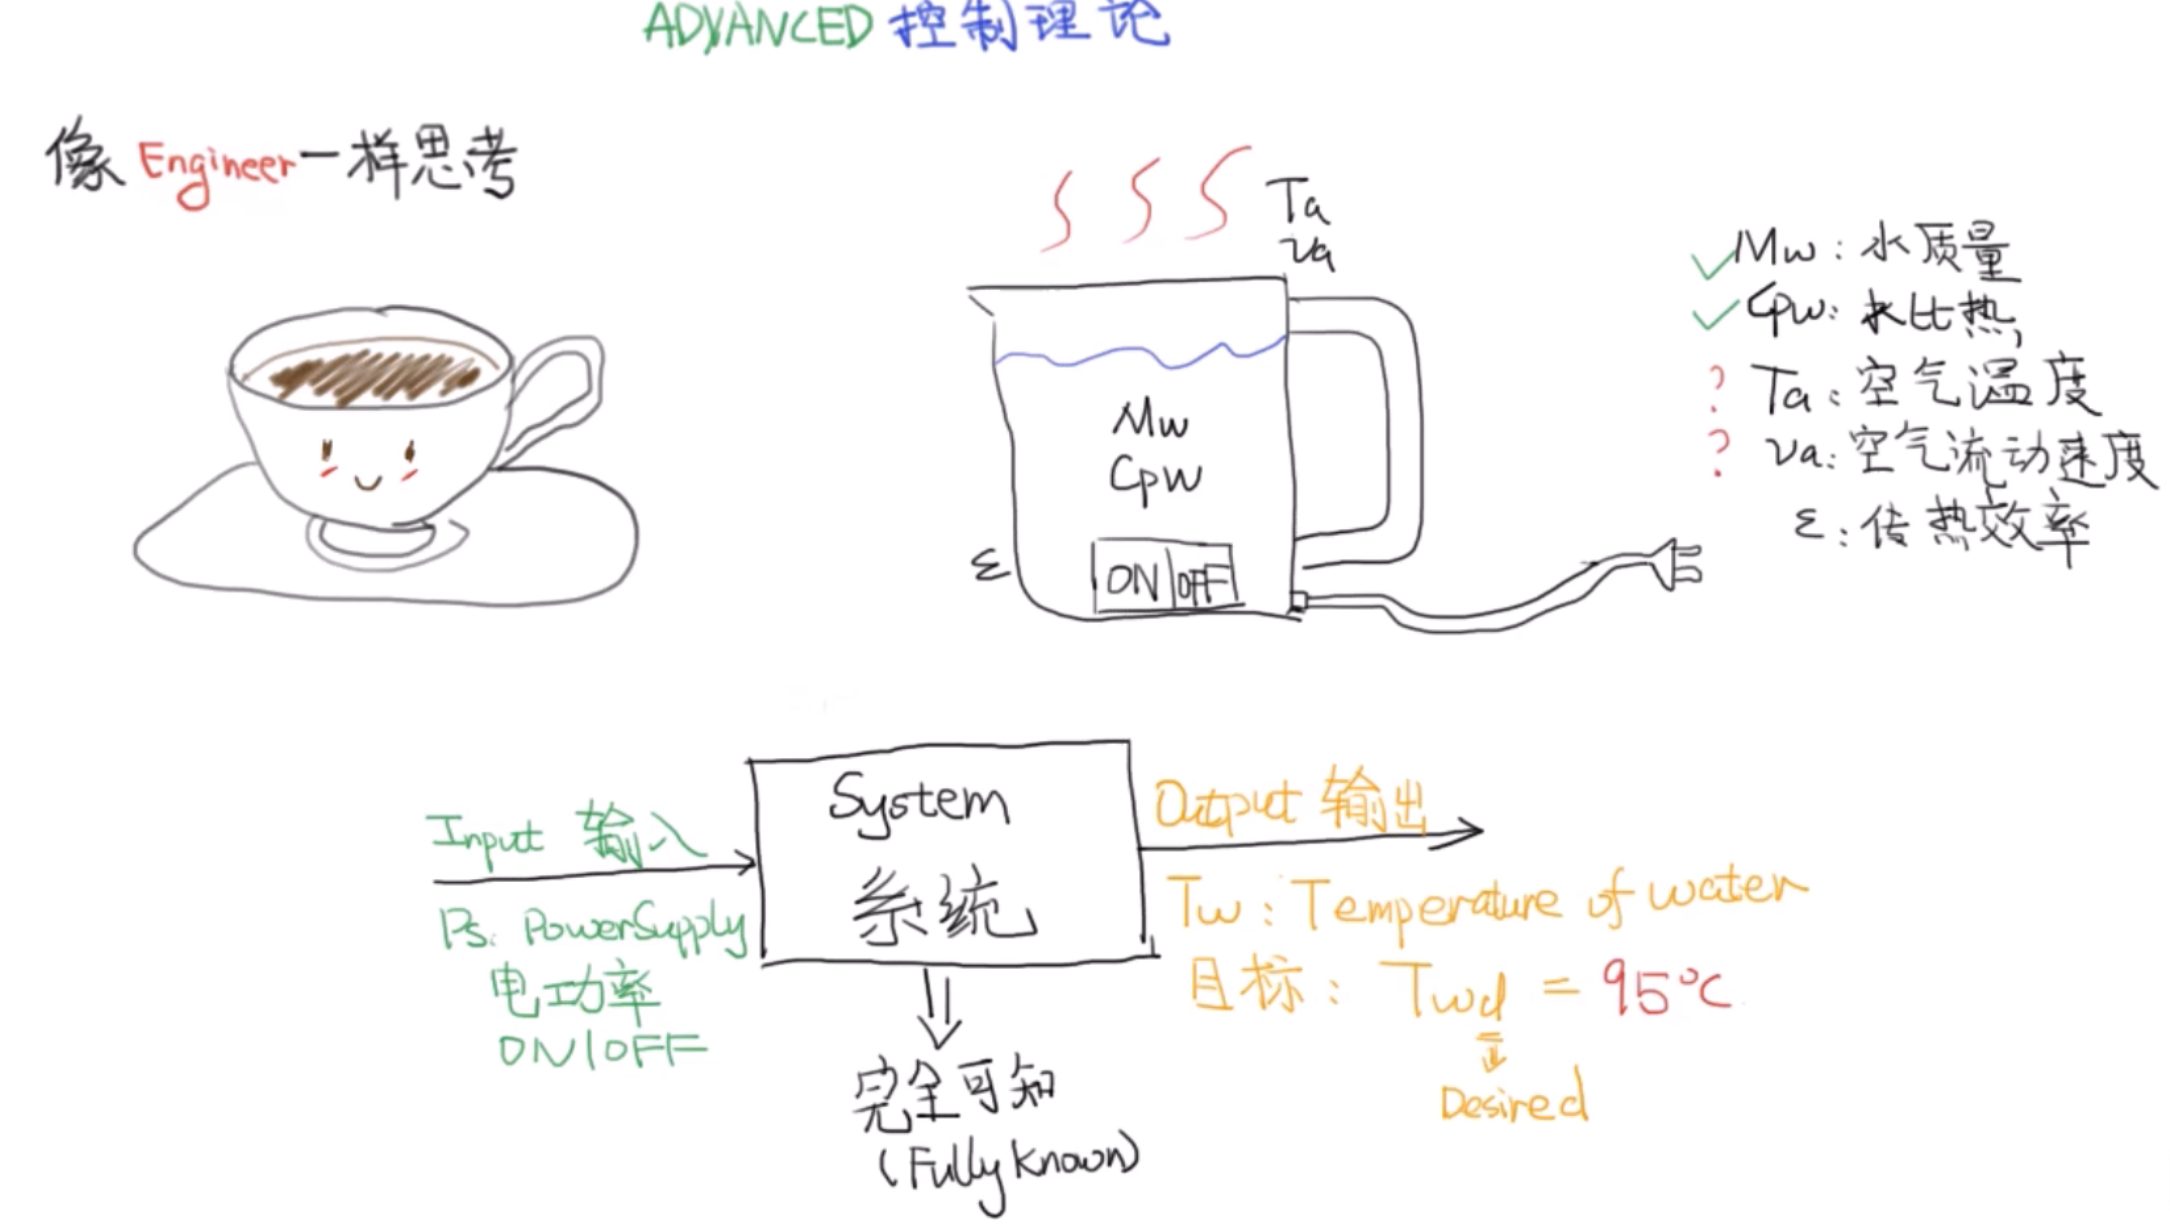 ADVANCED 控制理论
像Engineer一样思考
Ta
va
Mw
Cpw
ε
ON OFF
✓Mw：水质量
✓Cpw：水比热
? Ta：空气温度
? va：空气流动速度
ε：传热效率
Input 输入
Ps: PowerSupply
电功率
ON|OFF
System
系统
完全可知
(Fully Known)
Output 输出
Tw：Temperature of water
目标：Twd = 95℃
Desired